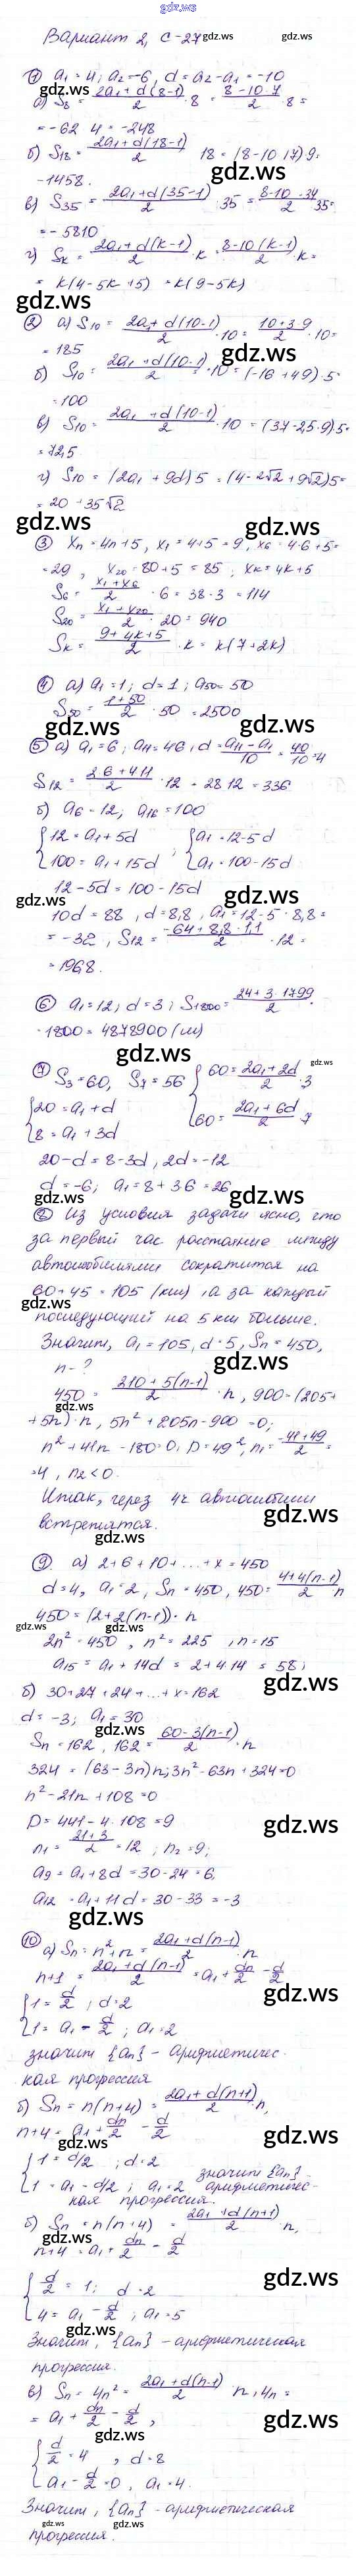 gdz.ws
Вариант 2, С-27
gdz.ws gdz.ws
① a₁ = 4, a₂ = -6, d = a₂ - a₁ = -10
а) S₈ = (2a₁ + d(8-1))/2 · 8 = (8 - 10 · 7)/2 · 8 =
= -62 4 = -248
б) S₁₈ = (2a₁ + d(18-1))/2 18 = (8 - 10 17) 9 =
-1458.
в) S₃₅ = (2a₁ + d(35-1))/2 · 35 = (8 - 10 · 34)/2 35 =
= -5810
г) Sₖ = (2a₁ + d(k-1))/2 · k = (8 - 10(k-1))/2 · k =
= k(4 - 5k + 5) = k(9 - 5k)
gdz.ws
② а) S₁₀ = (2a₁ + d(10-1))/2 · 10 = (10 + 3 9)/2 · 10 =
= 185
б) S₁₀ = (2a₁ + d(10-1))/2 · 10 = (-16 + 49) · 5 =
= 100
в) S₁₀ = (2a₁ + d(10-1))/2 · 10 = (37 - 2,5 · 9) 5 =
= 72,5
г) S₁₀ = (2a₁ + 9d) 5 = (4 - 2√2 + 9√2) 5 =
= 20 + 35√2
gdz.ws gdz.ws
③ xₙ = 4n + 5, x₁ = 4 + 5 = 9, x₆ = 4 · 6 + 5 =
= 29, x₂₀ = 80 + 5 = 85; xₖ = 4k + 5
S₆ = (x₁ + x₆)/2 · 6 = 38 · 3 = 114
S₂₀ = (x₁ + x₂₀)/2 · 20 = 940
Sₖ = (9 + 4k + 5)/2 · k = k(7 + 2k)
④ а) a₁ = 1; d = 1; a₅₀ = 50
S₅₀ = (1 + 50)/2 · 50 = 2500
gdz.ws gdz.ws
⑤ а) a₁ = 6; a₁₁ = 46, d = (a₁₁ - a₁)/10 = 40/10 = 4
S₁₂ = (2 6 + 4 11)/2 · 12 = 28 12 = 336
б) a₆ = 12; a₁₆ = 100
{12 = a₁ + 5d ; {a₁ = 12 - 5d
{100 = a₁ + 15d {a₁ = 100 - 15d
12 - 5d = 100 - 15d
10d = 88, d = 8,8, a₁ = 12 - 5 · 8,8 =
= -32, S₁₂ = (-64 + 8,8 · 11)/2 · 12 =
= 196,8.
⑥ a₁ = 12; d = 3; S₁₈₀₀ = (24 + 3 · 1799)/2 ·
· 1800 = 4878900 (м)
gdz.ws gdz.ws
⑦ S₃ = 60, S₇ = 56 {60 = (2a₁ + 2d)/2 · 3
{20 = a₁ + d {60 = (2a₁ + 6d)/2 · 7
{8 = a₁ + 3d
20 - d = 8 - 3d, 2d = -12
d = -6; a₁ = 8 + 3 6 = 26
gdz.ws gdz.ws
⑧ Из условия задачи ясно, что
за первый час расстояние между
автомобилями сократится на
60 + 45 = 105 (км), а за каждый
последующий на 5 км больше.
Значит, a₁ = 105, d = 5, Sₙ = 450,
n - ?
450 = (210 + 5(n-1))/2 · n, 900 = (205 +
+ 5n) · n, 5n² + 205n - 900 = 0;
n² + 41n - 180 = 0, D = 49², n₁ = (-41 + 49)/2 =
= 4, n₂ < 0.
Итак, через 4ч автомобили
встретятся.
gdz.ws
⑨ а) 2 + 6 + 10 + ... + x = 450
d = 4, a₁ = 2, Sₙ = 450, 450 = (4 + 4(n-1))/2 n
450 = (2 + 2(n-1)) · n
2n² = 450, n² = 225, n = 15
a₁₅ = a₁ + 14d = 2 + 4 · 14 = 58;
б) 30 + 27 + 24 + ... + x = 162
d = -3; a₁ = 30
Sₙ = 162, 162 = (60 - 3(n-1))/2 · n
324 = (63 - 3n) n; 3n² - 63n + 324 = 0
n² - 21n + 108 = 0
D = 441 - 4 · 108 = 9
n₁ = (21 + 3)/2 = 12; n₂ = 9;
a₉ = a₁ + 8d = 30 - 24 = 6,
a₁₂ = a₁ + 11d = 30 - 33 = -3
gdz.ws
⑩ а) Sₙ = n² + n = (2a₁ + d(n-1))/2 · n
n + 1 = (2a₁ + d(n-1))/2 = a₁ + dn/2 - d/2
{1 = d/2; d = 2
{1 = a₁ - d/2; a₁ = 2
значит {aₙ} - арифметичес-
кая прогрессия
б) Sₙ = n(n + 4) = (2a₁ + d(n+1))/2 · n,
n + 4 = a₁ + dn/2 - d/2
{1 = d/2; d = 2
{1 = a₁ - d/2; a₁ = 2 значит {aₙ} - арифметичес-
кая прогрессия.
б) Sₙ = n(n + 4) = (2a₁ + d(n+1))/2 · n,
n + 4 = a₁ + dn/2 - d/2
{d/2 = 1; d = 2
{4 = a₁ - d/2; a₁ = 5
Значит, {aₙ} - арифметическая
прогрессия.
в) Sₙ = 4n² = (2a₁ + d(n-1))/2 n, 4n =
= a₁ + dn/2 - d/2,
{d/2 = 4, d = 8
{a₁ - d/2 = 0, a₁ = 4.
Значит, {aₙ} - арифметическая
прогрессия.
gdz.ws gdz.ws